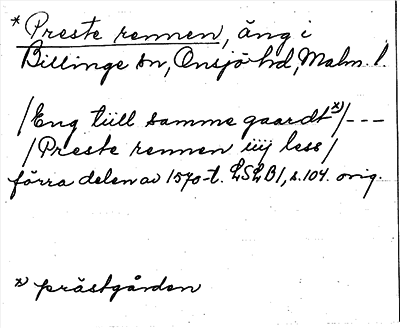 * Preste rennen, äng i
Billinge sn, Onsjö hd, Malm. l.
/Eng tiill samme gaardt x)/---
/Preste rennen iiij less/
förra delen av 1570-t. LSLB1, s. 104. orig.
x) prästgården